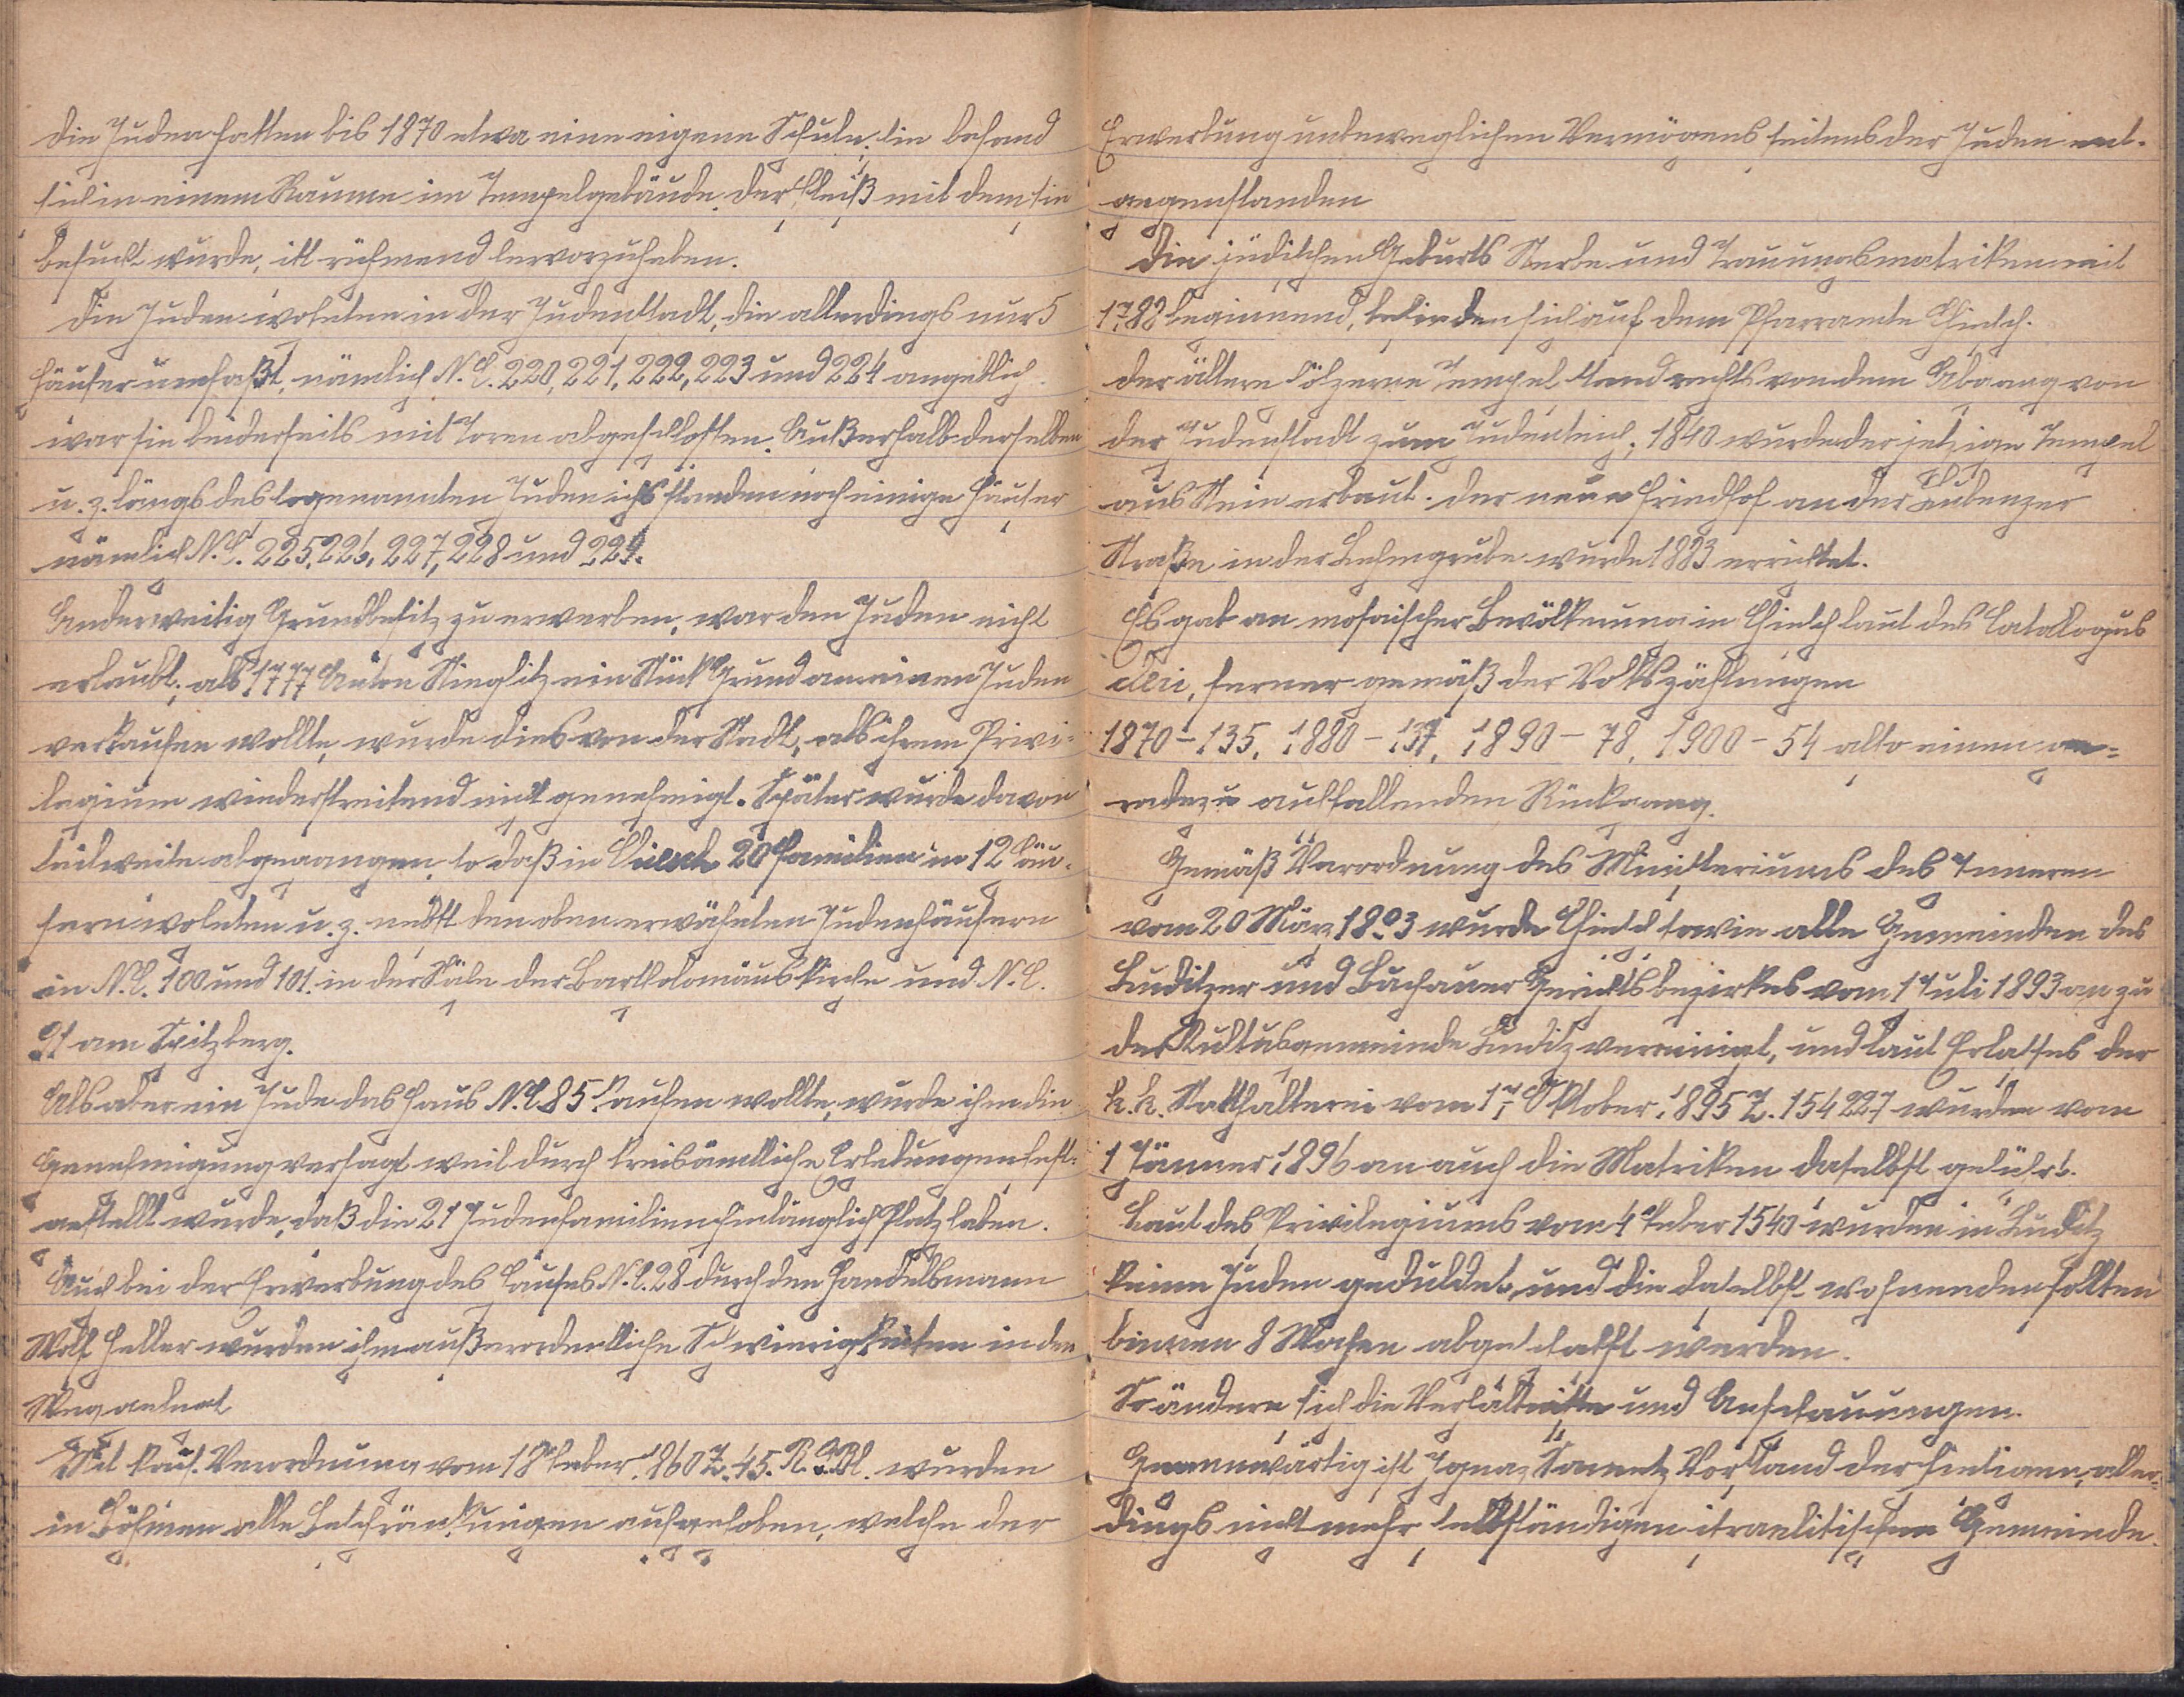 Die Juden hatten bis 1870 etwa eine eigene Schule; sie befand
sich in einem Raume im Tempelgebäude. Der Fleiß mit dem sie
besucht wurde, ist rühmend hervorzuheben.
Die Juden wohnten in der Judenstadt, die allerdings nur 5
Häuser umfaßt, nämlich N.C. 220, 221, 222, 223 und 224 angeblich
war sie beiderseits mit Toren abgeschlossen. Außerhalb derselben
u. z. längs des sogenannten standen noch einige Häuser
nämlich N.C. 225, 226, 227, 228 und 229.
Anderweitig Grundbesitz zu erwerben, war den Juden nicht
erlaubt; als 1777 Anton Stinglitz ein Stück Grund an einen Juden
verkaufen wollte, wurde dies von der Stadt, als ihrem Privi-
legium wiederstreitend nicht genehmigt. Später wurde davon
teilweise abgegangen, so daß in Chiesch 20 Familien in 12 Häu-
sern wohnten u. z. nebst den oben erwähnten Judenhäusern
in N.C. 100 und 101. in der Nähe der Bartholomäuskirche und N.C.
91 am Spitzberg.
Als aber ein Jude das Haus N.C. 85 kaufen wollte, wurde ihm die
Genehmigung versagt weil durch kreisämtliche Erhebungen fest-
gestellt wurde, daß die 21 Judenfamilien hinlänglich Platz haben.
Auch bei der Erwerbung des Hauses N.C. 28 durch den Handelsmann
Wolf Heller wurden ihm außerordentliche Schwierigkeiten in den
Weg gelegt
Mit kais. Verordnung vom 18 Feber 1860 Z. 45. R.G.Bl. wurden
in Böhmen alle Beschränkungen aufgehoben, welche der
Erwerbung unbeweglichen Vermögens seitens der Juden ent-
gegenstanden
Die jüdischen Geburts Sterbe und Trauungsmatriken mit
1782 beginnend, befinden sich auf dem Pfarramte Chiesch.
Der ältere hölzerne Tempel stand rechts von dem Abgang von
der Judenstadt zum Judenteich; 1840 wurde der jetzige Tempel
aus Stein erbaut. Der neue Friedhof an der Lubenzer
Straße in der Lehmgrube wurde 1883 errichtet.
Es gab an mosaischer Bevölkerung in Chiesch laut des Catalogus
cleri, ferner gemäß der Volkszählungen
1870 - 135, 1880 - 137, 1890 - 78, 1900 - 54 also einen ge-
radezu auffallenden Rückgang.
Gemäß Verordnung des Ministeriums des Inneren
vom 20 März 1893 wurde Chiesch sowie alle Gemeinden des
Luditzer und Buchauer Gerichtsbezirkes vom 1 Juli 1893 an zu
der Kultusgemeinde Luditz vereinigt, und laut Erlasses der
k.k. Statthalterei vom 17 Oktober 1895 Z. 154227 wurden vom
1 Jänner 1896 an auch die Matriken daselbst geführt.
Laut des Privilegiums vom 4 Feber 1540 wurden in Luditz
keine Juden geduldet, und die daselbst wohnenden sollten
binnen 8 Wochen abgeschafft werden.
So ändern sich die Verhältnisse und Anschauungen.
Gegenwärtig ist Ignaz Vorstand der hiesigen, aller-
dings nicht mehr selbständigen israelitischen Gemeinde.